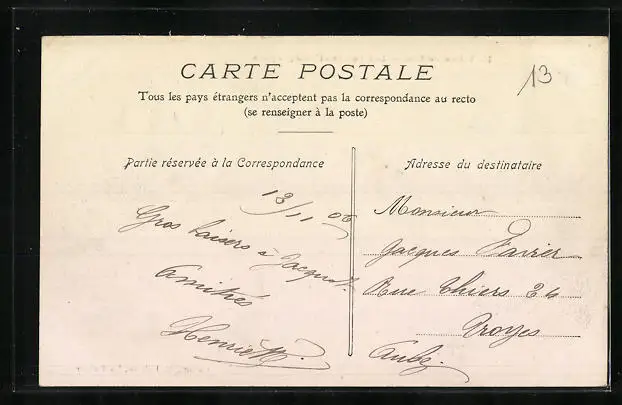 CARTE POSTALE
13
Tous les pays étrangers n'acceptent pas la correspondance au recto
(se renseigner à la poste)
Partie réservée à la Correspondance
Adresse du destinataire
13/11 06
Gros baisers à Jacquot.
Amitiés
Henriette.
Monsieur
Jacques Favier
Rue Thiers 24
Troyes
Aube